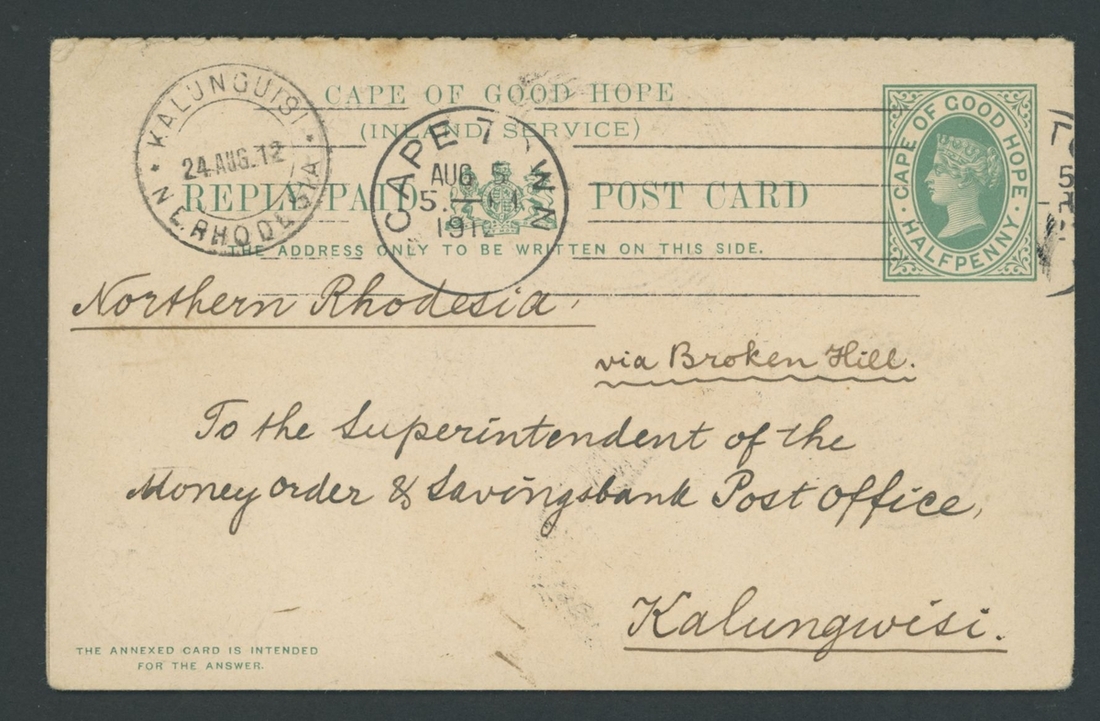 CAPE OF GOOD HOPE
(INLAND SERVICE)
REPLY PAID POST CARD
THE ADDRESS ONLY TO BE WRITTEN ON THIS SIDE.
CAPE OF GOOD HOPE
HALFPENNY
KALUNGUISI
24 AUG. 12
N.E. RHODESIA
CAPE TOWN
AUG 5
191
Northern Rhodesia,
via Broken Hill.
To the Superintendent of the
Money order & Savingsbank Post Office,
Kalungwisi.
THE ANNEXED CARD IS INTENDED
FOR THE ANSWER.